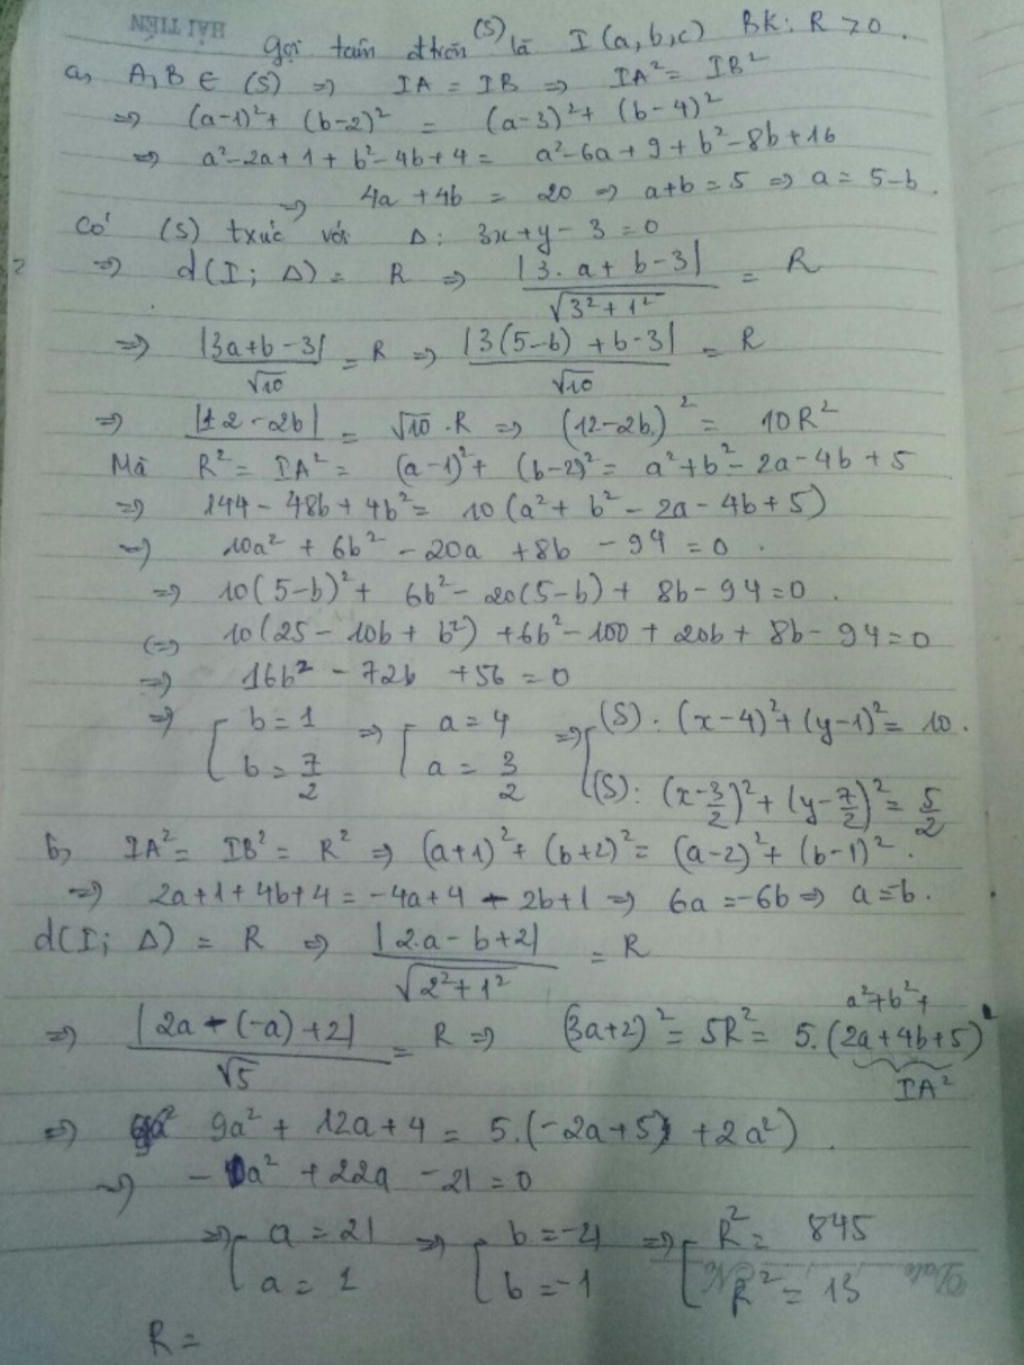 HẢI TIẾN
Gọi tâm đtròn (S) là I (a,b,c) BK: R > 0.
a, A,B ∈ (S) => IA = IB => IA² = IB²
=> (a-1)² + (b-2)² = (a-3)² + (b-4)²
=> a²-2a+1+b²-4b+4 = a²-6a+9+b²-8b+16
=> 4a+4b = 20 => a+b=5 => a = 5-b.
Có (S) txúc với Δ: 3x+y-3=0
=> d(I; Δ) = R => |3.a+b-3| / √3²+1² = R
=> |3a+b-3| / √10 = R => |3(5-b)+b-3| / √10 = R
=> |12-2b| = √10.R => (12-2b)² = 10R²
Mà R² = IA² = (a-1)² + (b-2)² = a²+b²-2a-4b+5
=> 144-48b+4b² = 10(a²+b²-2a-4b+5)
=> 10a²+6b²-20a+8b-94=0.
=> 10(5-b)²+6b²-20(5-b)+8b-94=0.
(=> 10(25-10b+b²)+6b²-100+20b+8b-94=0
=> 16b²-72b+56=0
=> [ b=1 => [ a=4 => [ (S): (x-4)²+(y-1)²=10.
b=7/2 a=3/2 (S): (x-3/2)²+(y-7/2)²=5/2
b, IA² = IB² = R² => (a+1)²+(b+2)² = (a-2)²+(b-1)².
=> 2a+1+4b+4=-4a+4-2b+1 => 6a=-6b => a=-b.
d(I; Δ) = R => |2.a-b+2| / √2²+1² = R
a²+b²+
=> |2a-(-a)+2| / √5 = R => (3a+2)² = 5R² = 5.(2a+4b+5)
IA²
=> 9a²+12a+4 = 5.(-2a+5+2a²).
=> -a²+22a-21=0
=> [ a=21 => [ b=-21 => [ R²= 845
a=1 b=-1 R²=13
Date No
R=